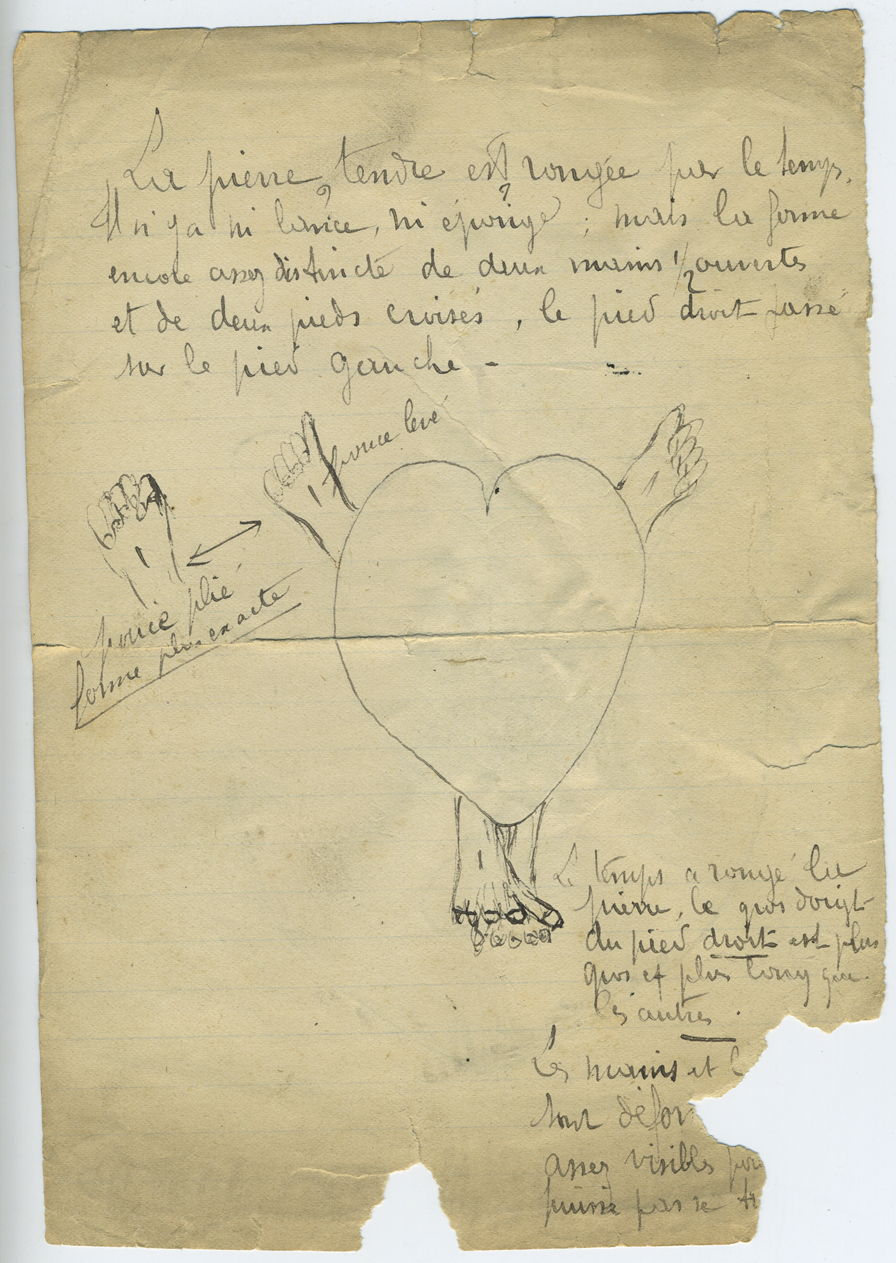 La pierre, tendre est rongée par le temps.
Il n'y a ni lance, ni éponge ; mais la forme
encore assez distincte de deux mains 1/2 ouvertes
et de deux pieds croisés, le pied droit passé
sur le pied gauche -
pouce levé
pouce plié
forme plus exacte
Le temps a rongé la
pierre, le gros doigt
du pied droit est plus
gros et plus long que
les autres.
Les mains et l
sont défor
assez visibles pou
puisse pas se tr